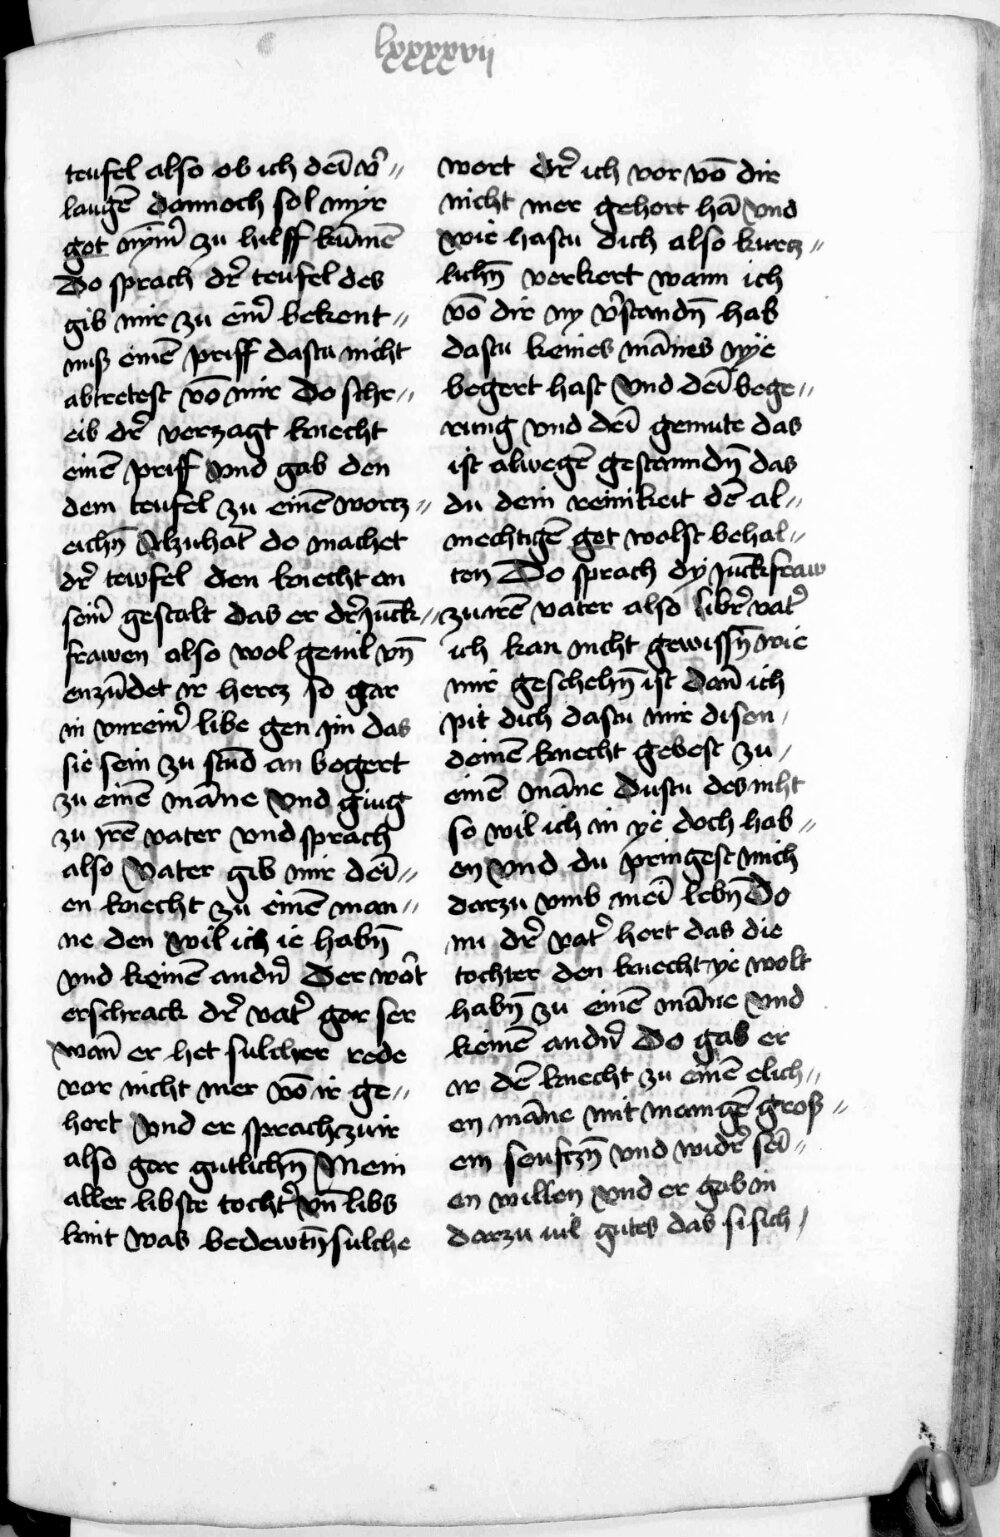 lxxxxvii
teufel also ob ich dei͂ v͛ //
laugē dannoch sol myr
got nȳm͛ zu hilff ku͂mē
Do sprach dr͛ teufel des
gib mir zu eim͛ bekent //
nuß einē priff dastu nicht
abtretest vō mir Do schr //
eib dr͛ verzagt knecht
einē priff vnd gab den
dem teufel zu einē wortz //
eichn̄ Alzuhāt do machet
dr͛ tewfel den knecht an
seim͛ gestalt das er dr͛ Jūck //
frawen also wol gevil vn̄
enzu͂det ir hertz so gar
in vnreim͛ libe gen im das
sie sein zu stūd an begert
zu einē māne vnd ging
zu irē vater vnd sprach
also Vater gib mir dei͂ //
en knecht zu einē man //
ne den wil ich ie habn̄
vnd keinen andn͛ Der wōt
erschrack dr͛ vat͛ gar ser
wan̄ er het sulcher rede
vor nicht mer vō ir ge //
hort Vnd er sprach zu ir
also gar gutlichn̄ Mein
aller libste tocht͛ vn̄ libs
kint was bedewtn̄ sulche
wort dr͛ ich vor vō dir
nicht mer gehort hā vnd
wie hastu dich also kurtz //
lichn̄ verkert wann ich
vō dir ny v͛standn̄ hab
dastu keines mānes nye
begert hast Vnd dei͂ bege //
rung vnd dei͂ gemute das
ist alwegē gestanndn̄ das
du dein reinikeit dē al //
mechtigē got wolst behal //
ten Do sprach dy juckfraw
zu irē vater also libr͛ vat͛
ich kan nicht gewissn̄ wie
mir geschehn̄ ist dan̄ ich
pit dich dastu mir disen /
deinē knecht gebest zu /
einē māne Dustu des niht
so wil ich in ye doch hab //
en vnd du pringest mich
darzu vmb mei͂ lebn̄ Do
nu dr͛ vat͛ hort das die
tochter den knecht ye wolt
habn̄ zu einē māne vnd
keinē andn͛ Do gab er
ir dē knecht zu einē elich //
en māne mit mangē groß //
em seufczn̄ vnd widr͛ sei͂ //
en willen vnd er gab in
darzu vil gutes das si sich /